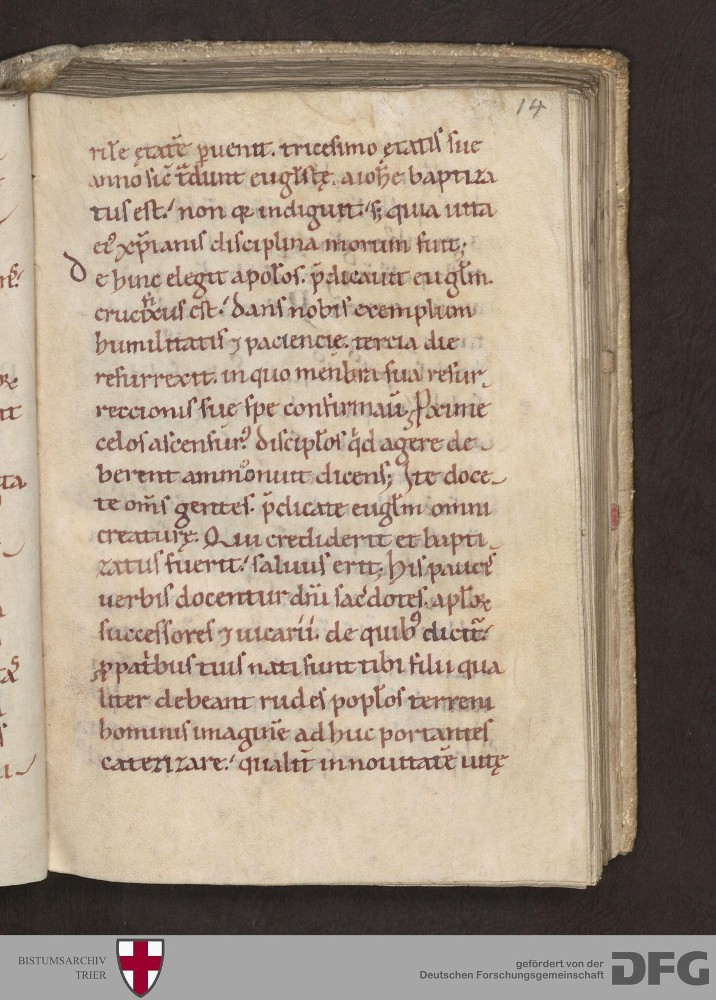 14
rile ętatē ꝑuenit. tricesimo ętatis sue
anno sic̄ t̄dunt eug̅listę. a ioh̄e baptiza
tus est.' non qr̄ indiguit.' s; quia uita
eiꝰ xp̄ianis disciplina morum fuit;
De hinc elegit apoſ̄los. p̄dicauit eug̅lm̄.
crucifixus est.' dans nobis exemplum
humilitatis ⁊ paciencie. tercia die
resurrexit. in quo menbra sua resur-
reccionis sue spe confirmau̅; Proxime
celos ascensurꝰ. discipl̄os q̄d agere de-
berent ammonuit dicens; Ite doce-
te om̄s gentes. p̄dicate eug̅lm̄ omni
creaturę. Qui crediderit et bapti-
zatus fuerit.' saluus erit; His paucis
uerbis docentur dn̄i sac̄dotes. apl̄oꝝ
successores ⁊ uicarii. de quibꝰ dicit̄.'
ꝓ pat̄bus tuis nati sunt tibi filii qua
liter debeant rudes popl̄os terreni
hominis imaginē ad huc portantes
catezizare.' qualit̄ in nouitatē uitę
BISTUMSARCHIV
TRIER
gefördert von der
Deutschen Forschungsgemeinschaft
DFG